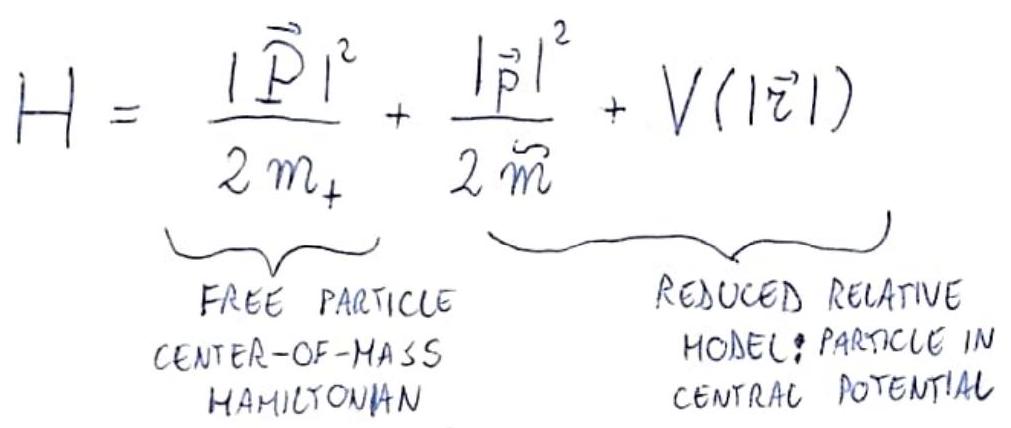 H = |P⃗|²/2m₊ + |p⃗|²/2m̃ + V(|r⃗|)
FREE PARTICLE
CENTER-OF-MASS
HAMILTONIAN
REDUCED RELATIVE
MODEL: PARTICLE IN
CENTRAL POTENTIAL